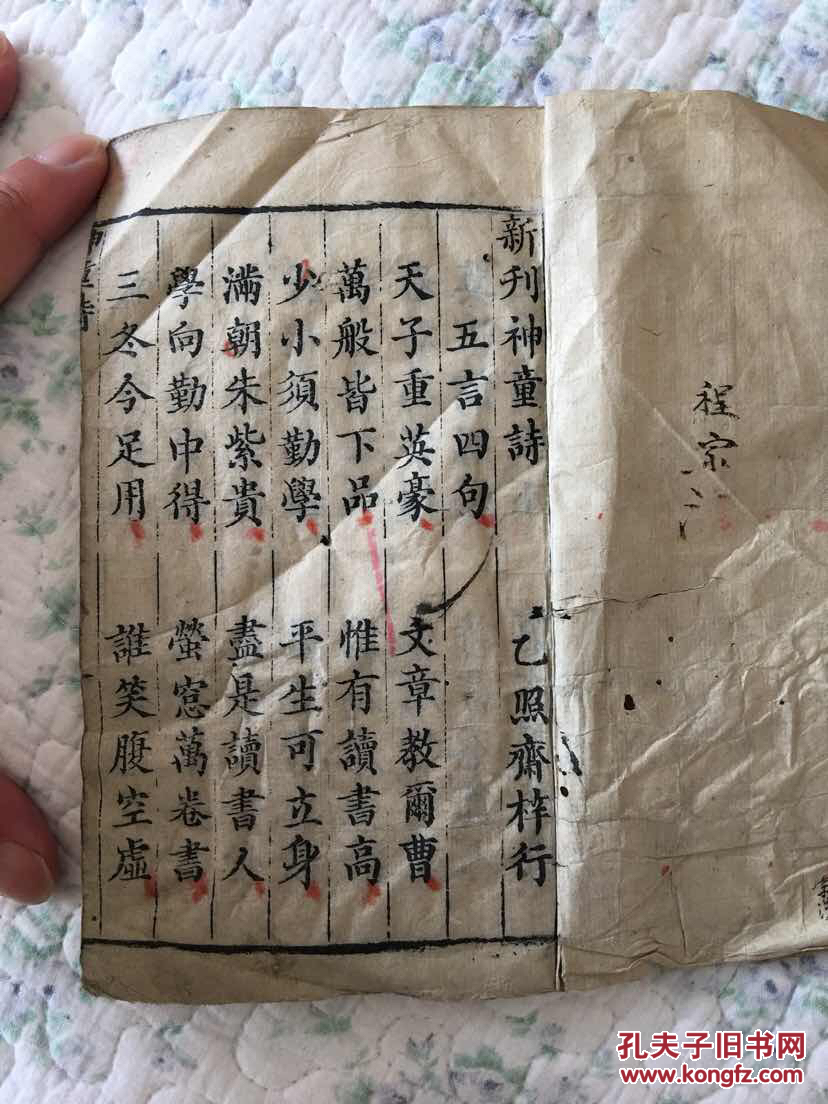 程宗
新刊神童詩 乙照齋梓行
五言四句
天子重英豪 文章教爾曹
萬般皆下品 惟有讀書高
少小須勤學 平生可立身
滿朝朱紫貴 盡是讀書人
學向勤中得 螢窓萬卷書
三冬今足用 誰笑腹空虛
神童詩
孔夫子旧书网
www.kongfz.com